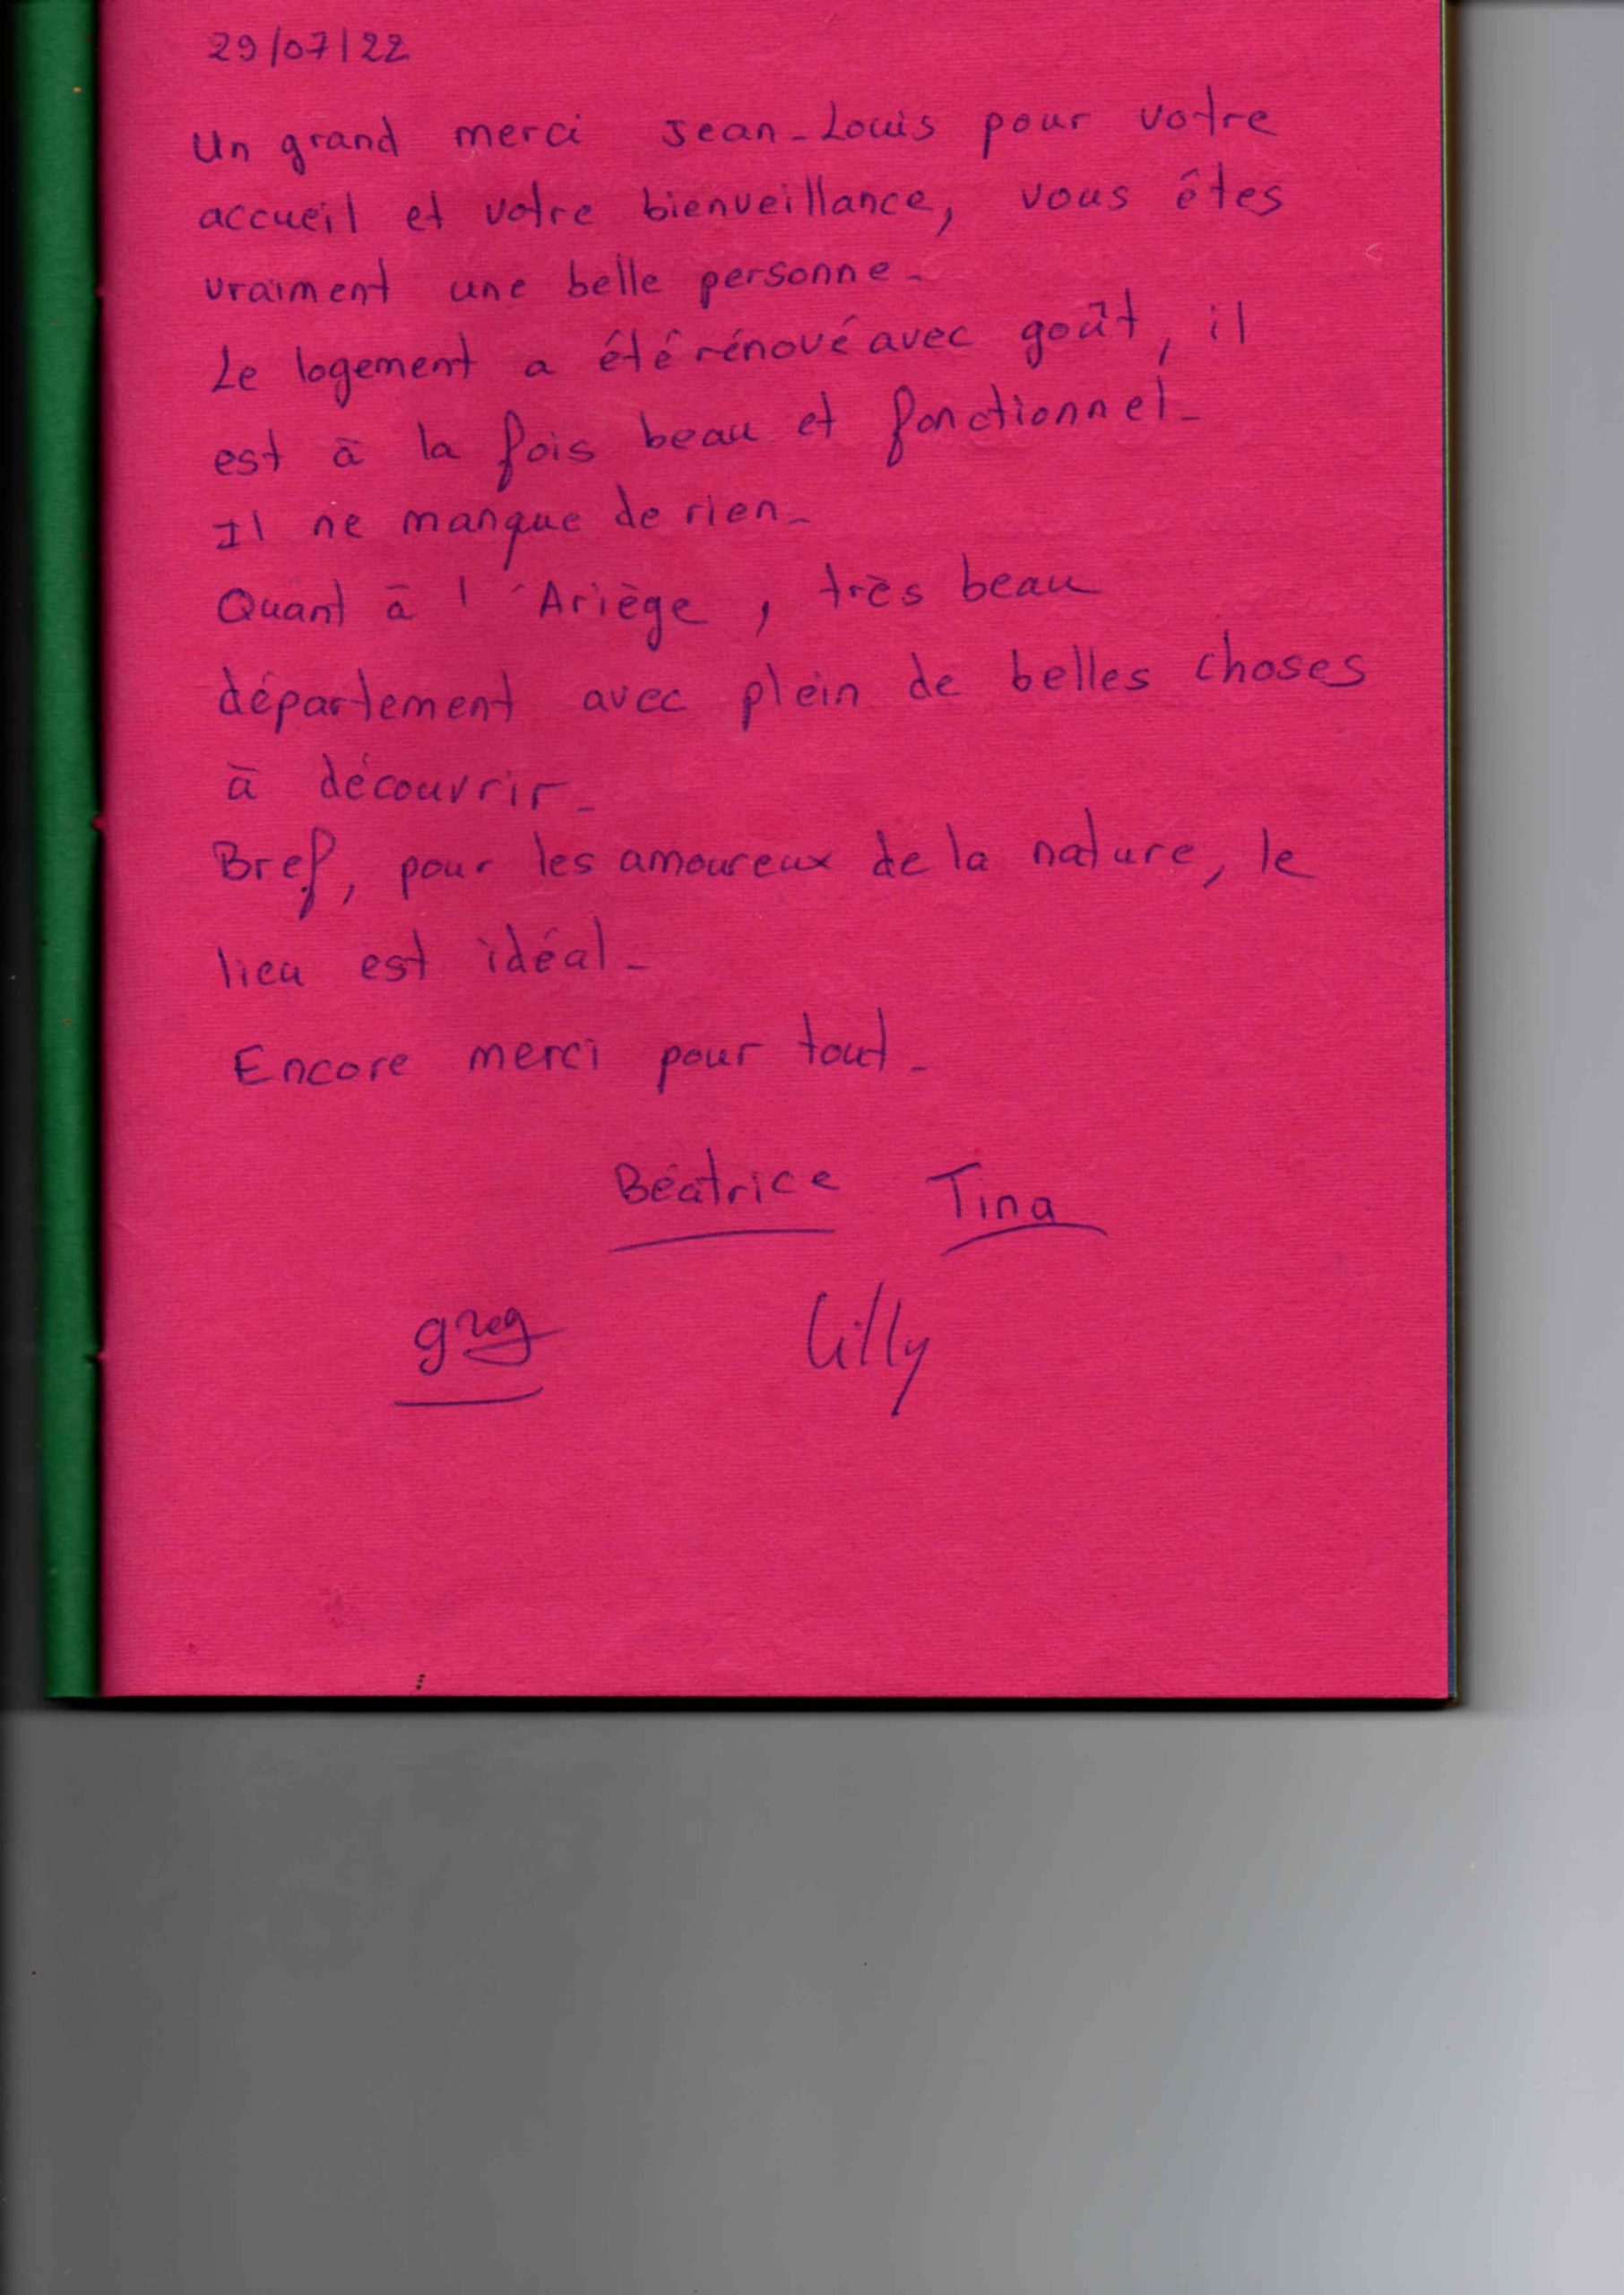 29/07/22
Un grand merci Jean-Louis pour votre
accueil et votre bienveillance, vous êtes
vraiment une belle personne.
Le logement a été rénové avec goût, il
est à la fois beau et fonctionnel.
Il ne manque de rien.
Quant à l'Ariège, très beau
département avec plein de belles choses
à découvrir.
Bref, pour les amoureux de la nature, le
lieu est idéal.
Encore merci pour tout.
Béatrice Tina
greg Lilly